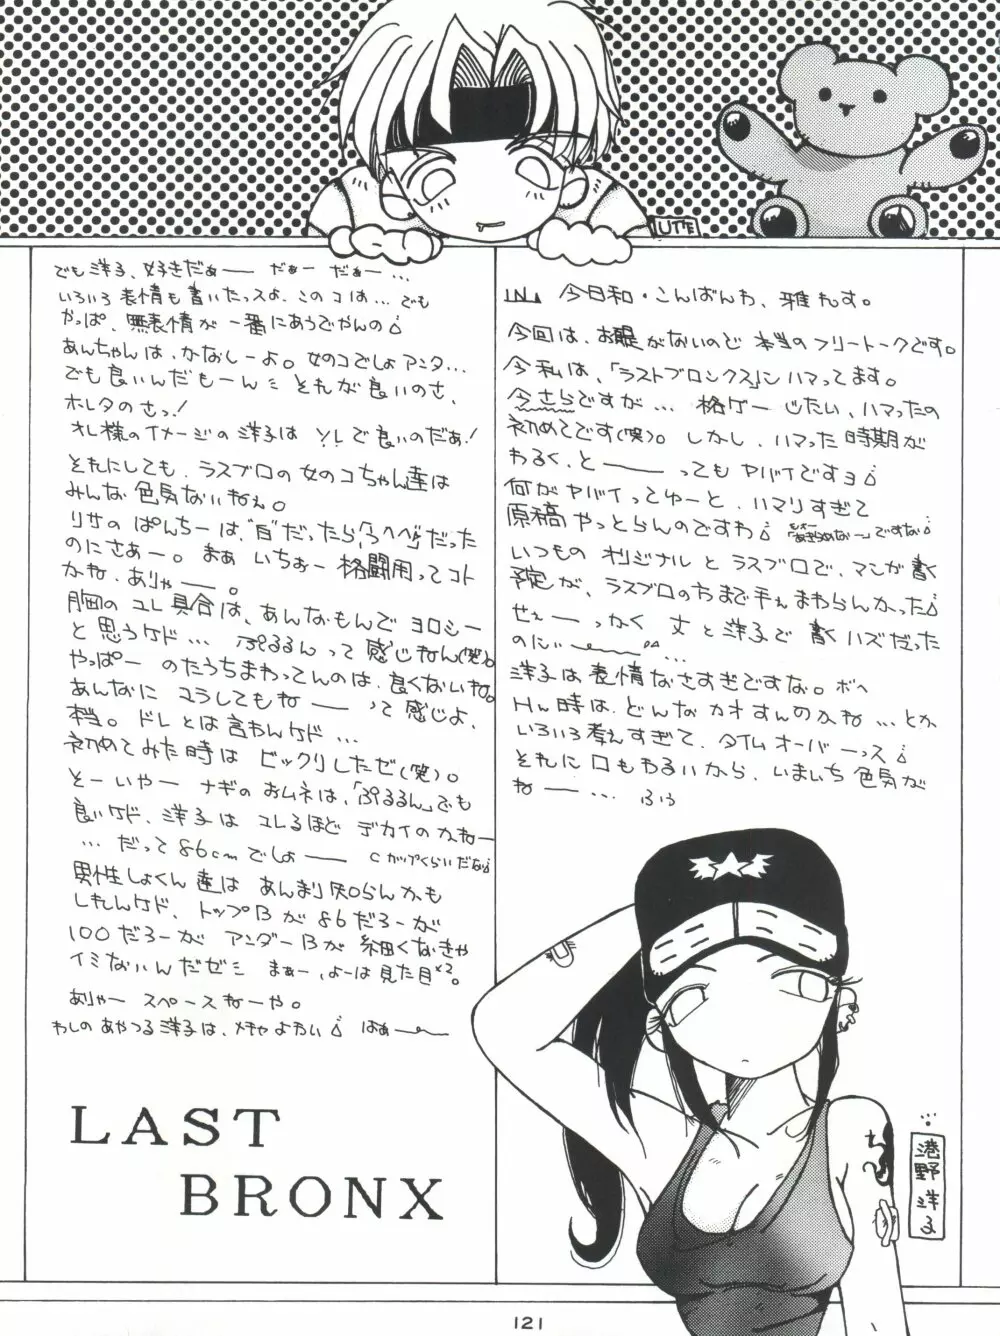 今日和・こんばんわ、雅れす。
今回は、お題がないので 本当のフリートークです。
今私は、「ラストブロンクス」にハマってます。
今さらですが… 格ゲー じたい、ハマったの
初めてです(笑)。しかし、ハマった時期が
わるく、と――ってもヤバイですョ
何がヤバイってゅーと、ハマりすぎて
原稿やっとらんのですわ
いつもの オリジナルと ラスブロで、マンガ書く
予定が、ラスブロのちまで手ぇまわらんかった
せぇ――っかく 丈と洋子で 書くハズだった
のにぃ―― …
洋子は表情なさすぎですな。ボヘ
Hん時は、どんなカオすんのかね…とか
いろいろ考えすぎて、タイムオーバーっス
それに口もわるいから、いまいち色気が
ね――… ふぅ
でも洋子、好きだぁ―― だぁー だぁー…
いろいろ表情も書いたっスよ、このコは…でも
やっぱ、無表情が一番にあうでやんの
あんちゃんは、かなしーよ。女のコでしょアンタ…
でも良いんだもーんミ それが良いのさ、
ホレタのさっ!
オレ様のイメージの洋子は ソレで良いのだぁ!
それにしても、ラスブロの女のコちゃん達は
みんな色気ないねぇ。
リサのぱんちーは、“白”だったら
のにさぁー。まぁ いちぉー 格闘用ってコト
かね、ありゃ――。
胸のユレ具合は、あんなもんでヨロシー
と思うケド… ぷるるんって感じねん(笑)。
やっぱー のたうちまわってんのは、良くないね。
あんなに ユラしてもね――って感じよ、
本当。ドレとは言わんケド…
初めてみた時は ビックリしたゼ(笑)。
とーいやー ナギのおムネは、「ぷるるん」でも
良いケド、洋子は ユレるほど デカイのかねー
…だって86cmでしょ―― Cカップくらいだな
男性しょくん達は あんまり知らんかも
しれんケド、トップBが86だろーが
100だろーが アンダーBが細くなきゃ
イミないんだゼミ まぁー、よーは見た目×2。
ありゃー スペースねーや。
わしのあやつる洋子は、メチャよわい はぁ――
LAST
BRONX
港野洋子
121